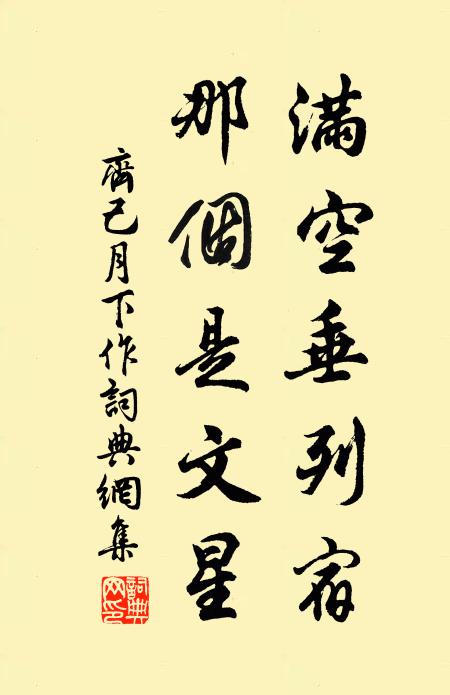 滿空垂列宿
那個是文星
齊己月下作詞典網集
詞典
网印